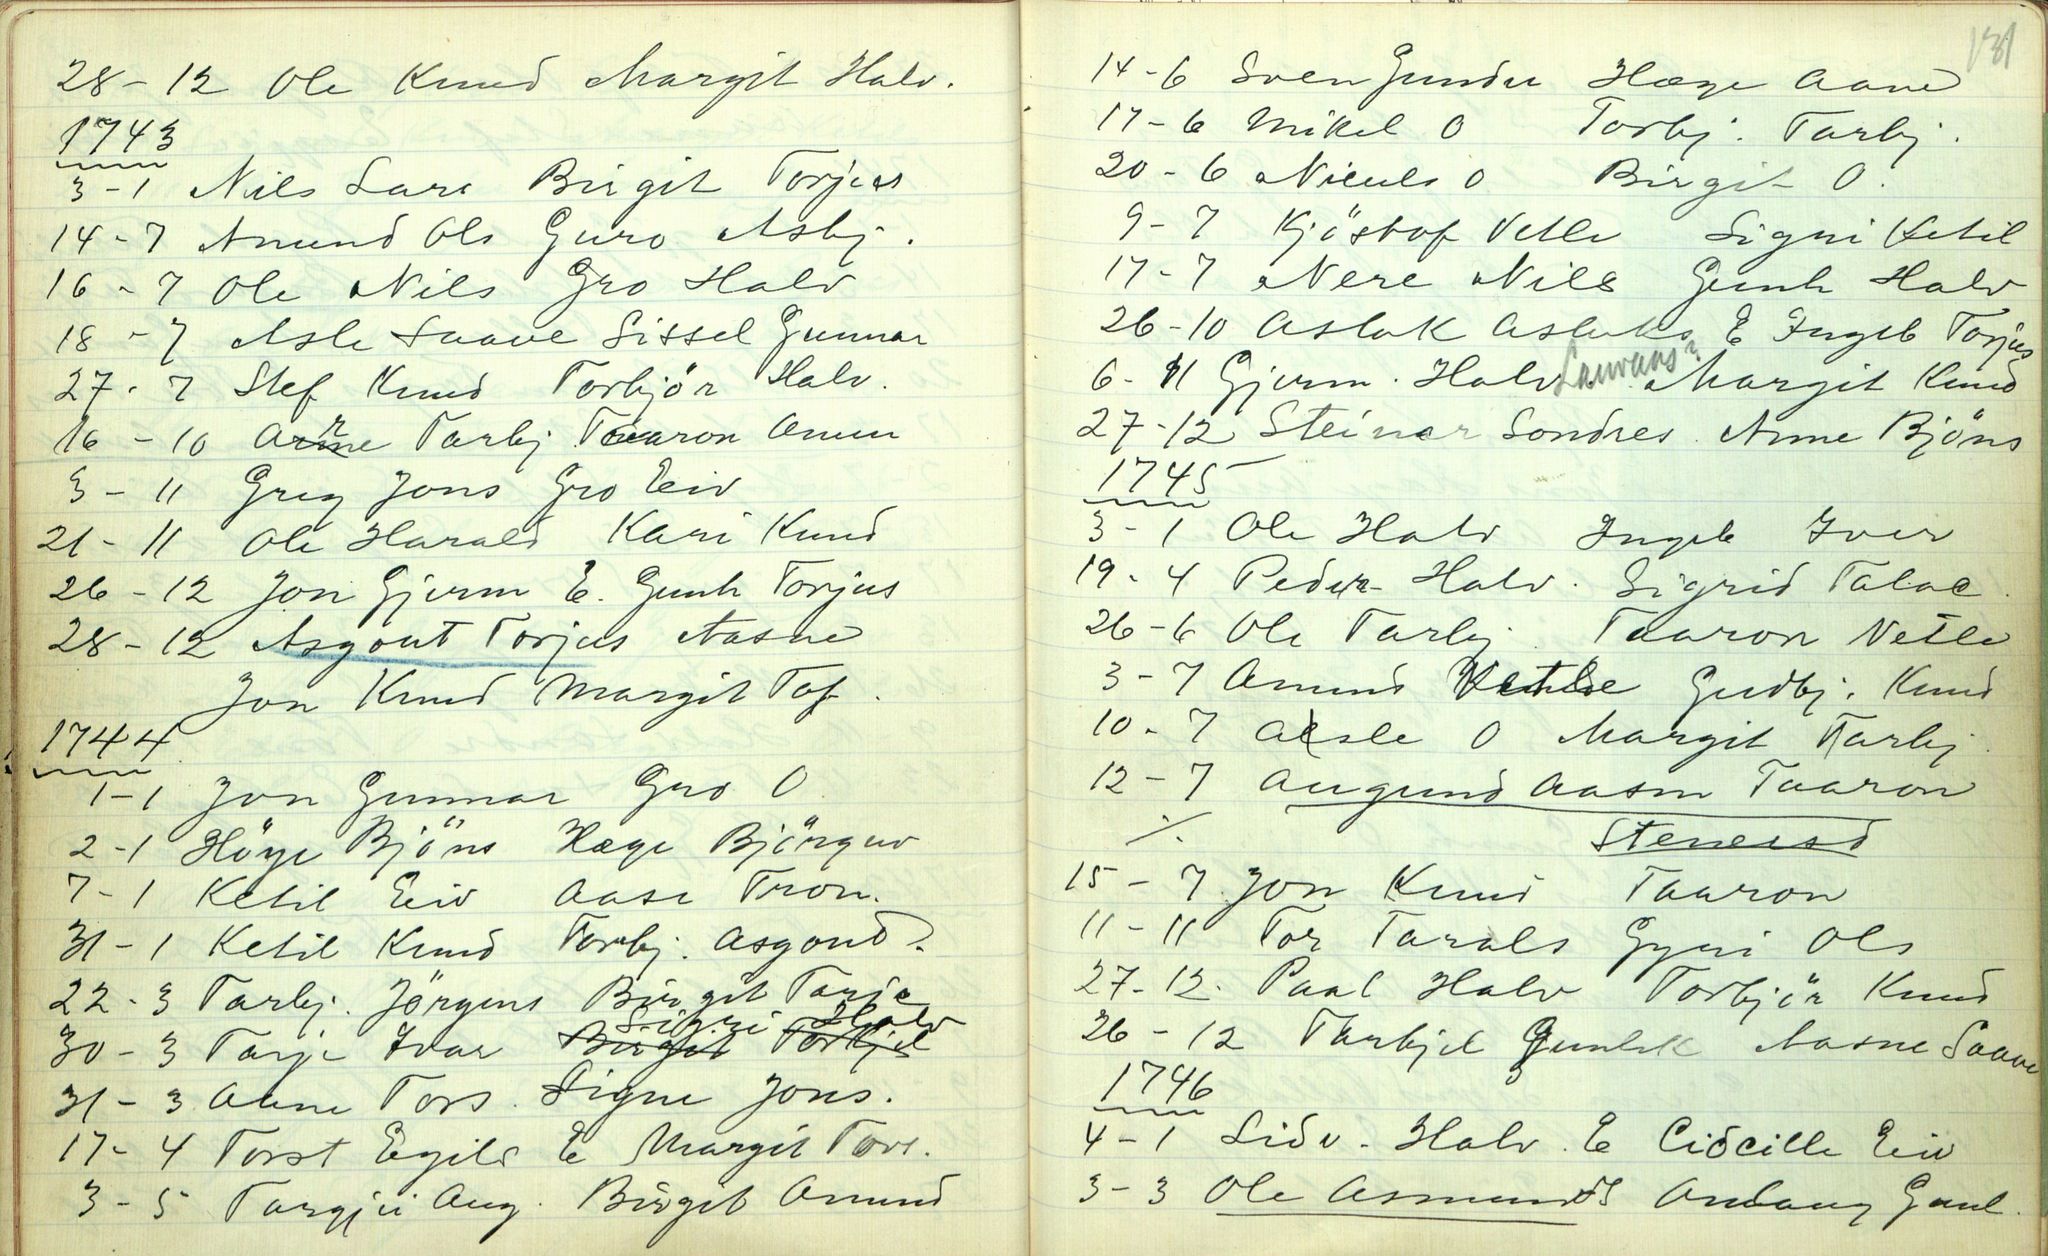 28 - 12 Ole Knud Margit Halv.
1743
3 - 1 Nils Lars Birgit Torjus
14 - 7 Amund Ols Guro Asbj.
16 - 7 Ole Nils Gro Halv
18 - 7 Asle Saave Sissel Gunnar
27 - 7 Stef Knud Torbjör Halv.
16 - 10 Arne Tarbj Taaron Amun
3 - 11 Greg Jons Gro Eiv
21 - 11 Ole Harald Kari Knud
26 - 12 Jon Gjerm E. Gunh Torjus
28 - 12 Asgout Torjus Aasne
Jon Knud Margit Tof.
1744
1 - 1 Jon Gunnar Gro O
2 - 1 Höye Bjöns Hæge Björguv
7 - 1 Ketil Eiv Aase Tron.
31 - 1 Ketil Knud Torbj. Asgoud.
22 - 3 Tarbj. Jörgens Birgit Tarje
Signi Halv
30 - 3 Tarje Ivar Birgit Torkjel
31 - 3 Aane Tors. Signe Jons.
17 - 4 Torst Egils E Margit Tore.
3 - 5 Targjei Aug. Birgit Amund
131
14 - 6 Sven Gundu Hæge Aane
17 - 6 Mikel O Torbj. Tarbj.
20 - 6 Niculs O Birgit O.
9 - 7 Kjöstof Vetle Signi Ketil
17 - 7 Nere Nils Gunh Halv
26 - 10 Aslak Aslaks E Ingeb Torjus
6 - 11 Gjerm. Halv Lauraas? Margit Knud
27 - 12 Steinar Sondres. Anne Bjöns
1745
3 - 1 Ole Halv Ingeb Iver
19 - 4 Peder Halv. Sigrid Talac.
26 - 6 Ole Tarbj. Taaron Vetle
3 - 7 Amund Gudbj. Knud
10 - 7 Asle O Margit Tarbj.
12 - 7 Augund Aasm Taaron
./. Stenersd
15 - 7 Jon Knud Taaron
11 - 11 Tor Tarals Gyri Ols
27 - 12. Paal Halv Torbjör Knud
26 - 12 Tarbjel Gunlek Aasne Saave
1746
4 - 1 Sidv. Halv. E Cidcille Eiv
3 - 3 Ole Asmunds Andaug Gunl.